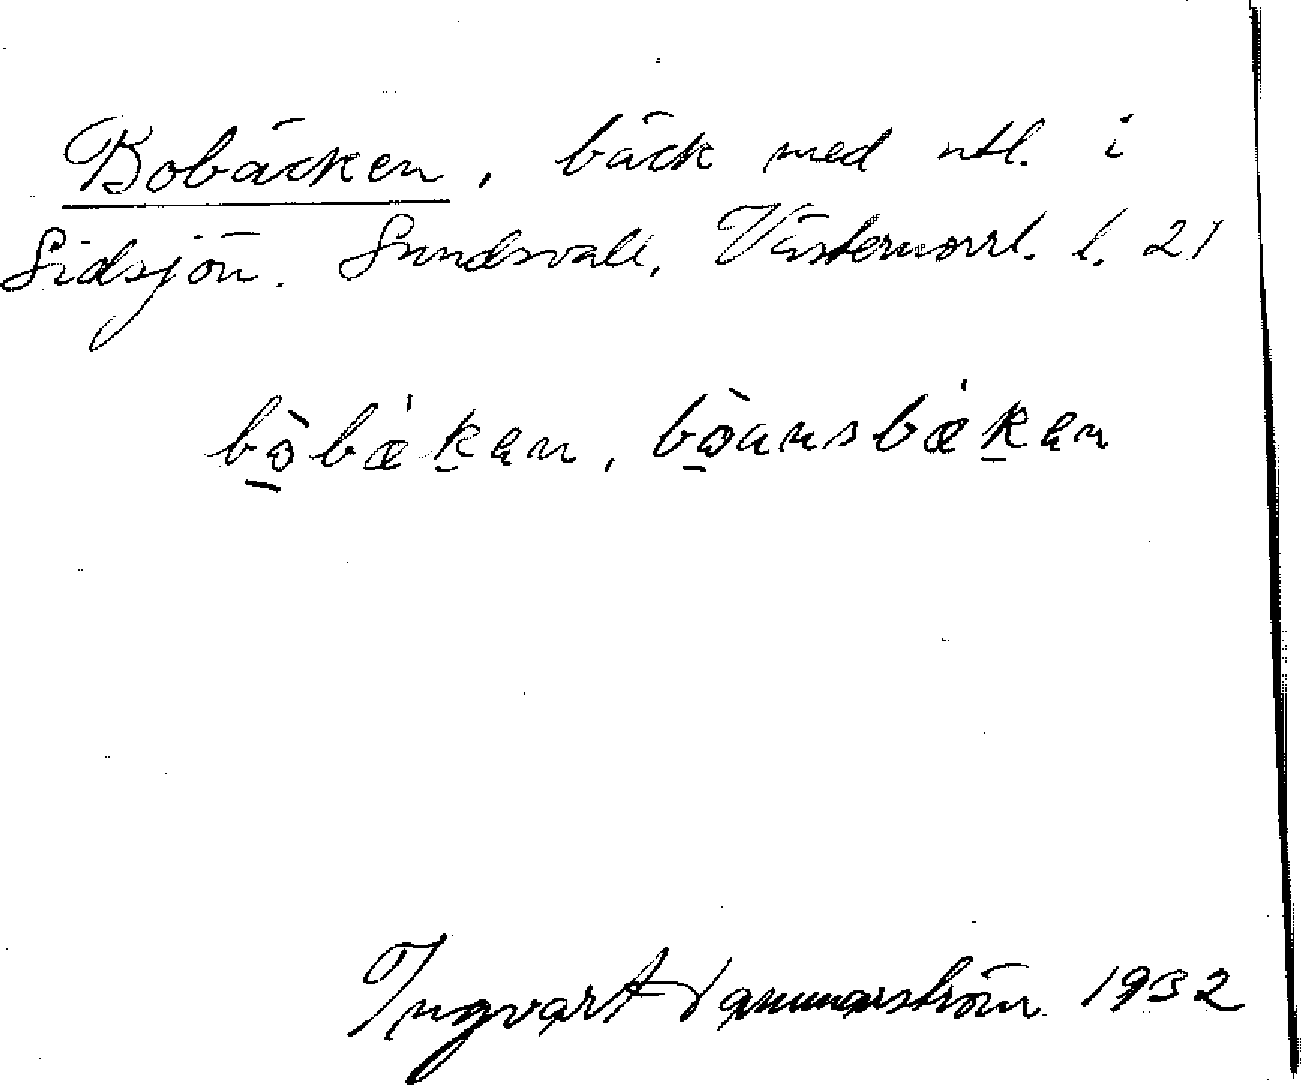 Bobäcken, bäck med utl. i
Sidsjön. Sundsvall, Västernorrl. l. 21
bò̱bækan, bò̱ansbækan
Ingvar Hammarström 1932